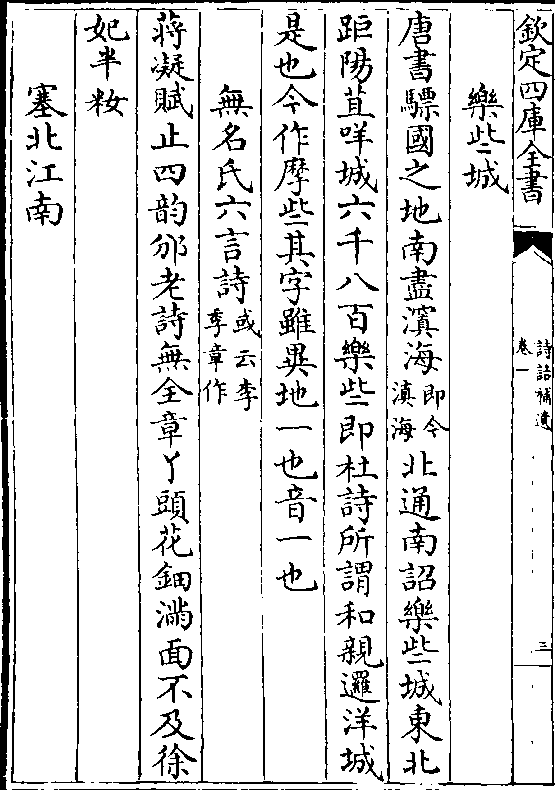 欽定四庫全書
詩話補遺
卷一
三
樂些城
唐書驃國之地南盡濵海即今滇海北通南詔樂些城東北
距陽苴咩城六千八百樂些即杜詩所謂和親邏洋城
是也今作摩些其字雖異地一也音一也
無名氏六言詩或云李季章作
蔣凝賦止四韵邠老詩無全章丫頭花鈿滿面不及徐
妃半粧
塞北江南